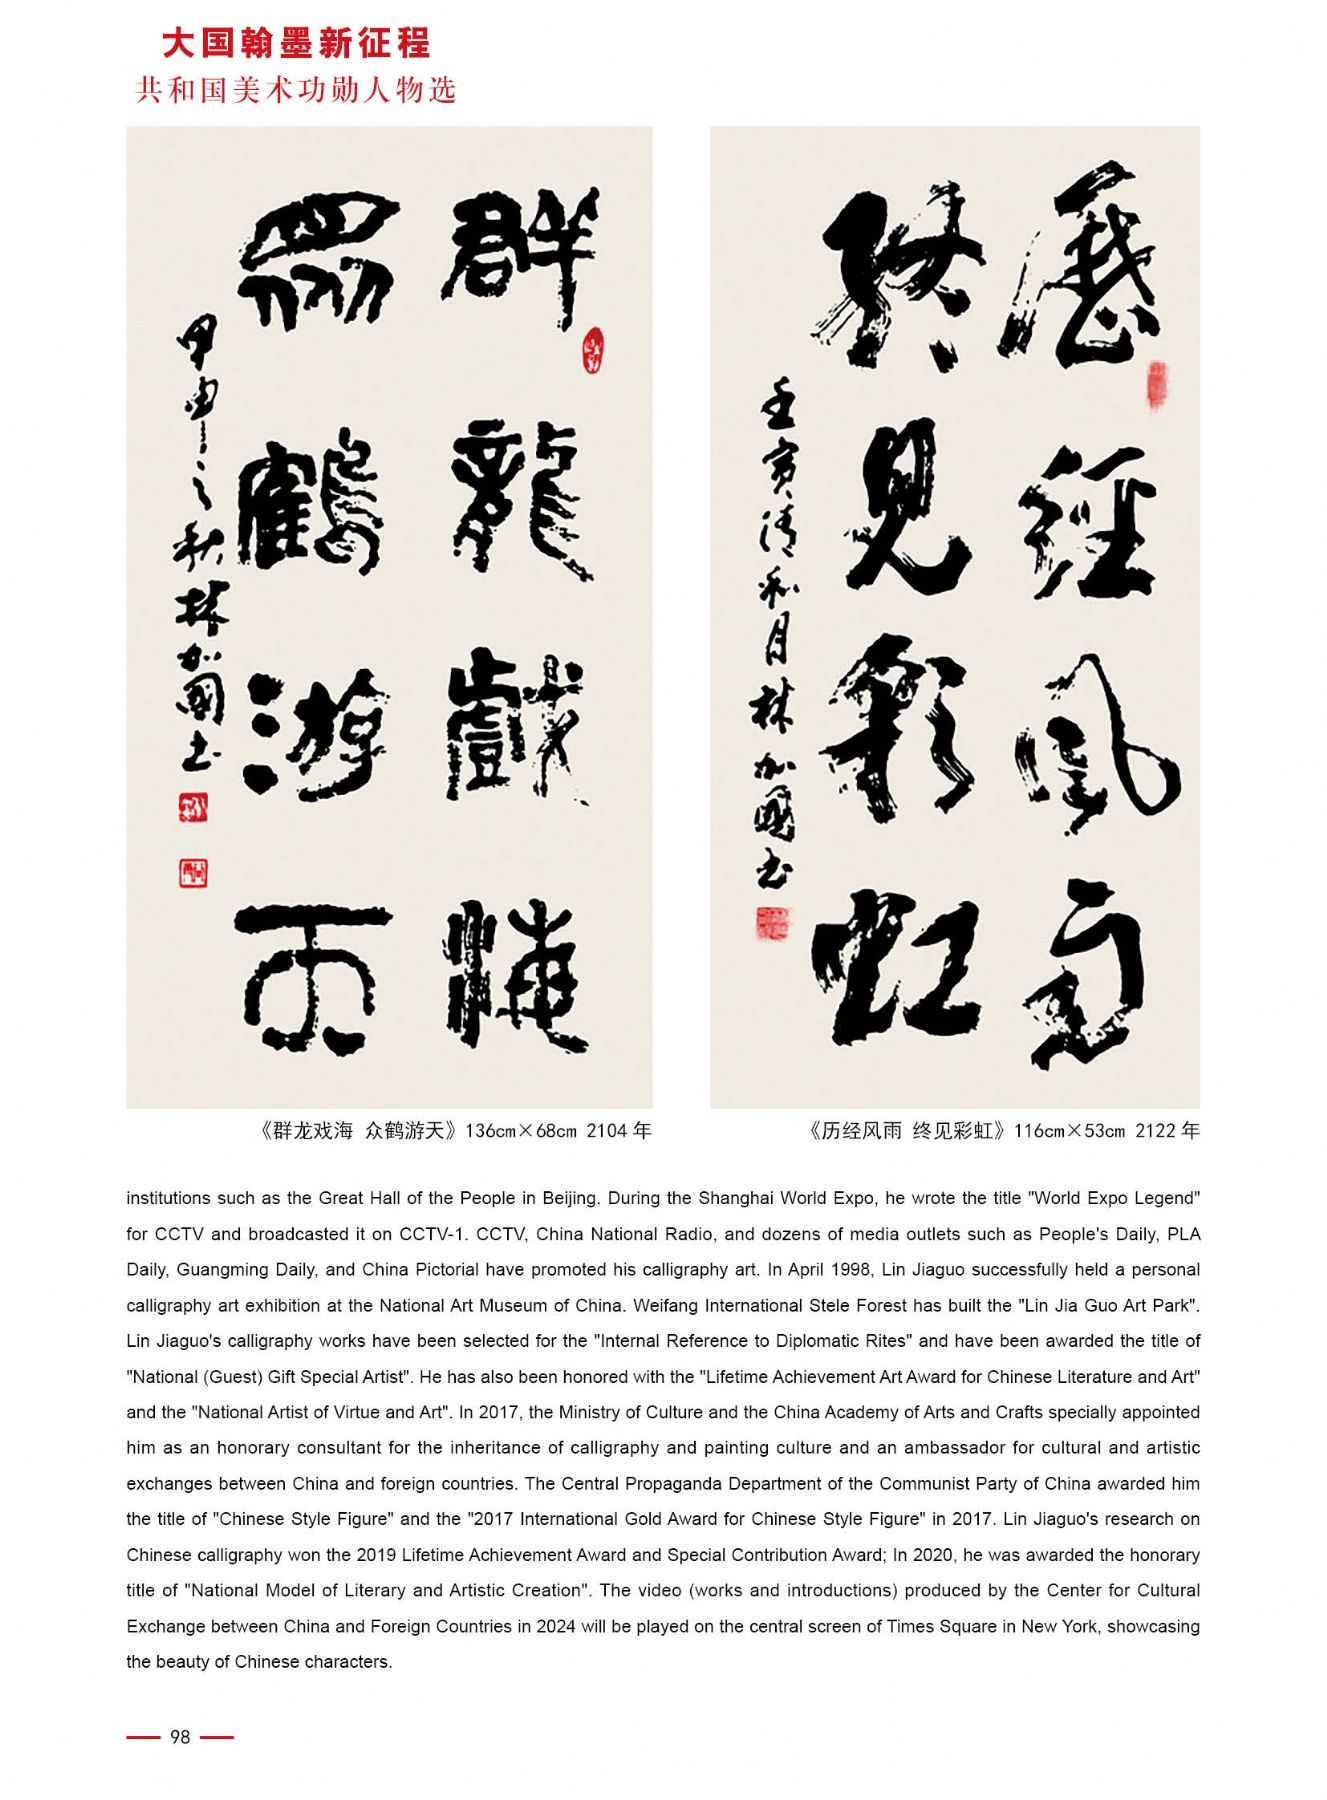 大国翰墨新征程
共和国美术功勋人物选
群龍戲海
眾鶴游天
甲申之秋林加國书
歷經风雨
终见彩虹
壬寅清和月林加國书
《群龙戏海 众鹤游天》136cm×68cm 2104 年
《历经风雨 终见彩虹》116cm×53cm 2122 年
institutions such as the Great Hall of the People in Beijing. During the Shanghai World Expo, he wrote the title "World Expo Legend"
for CCTV and broadcasted it on CCTV-1. CCTV, China National Radio, and dozens of media outlets such as People's Daily, PLA
Daily, Guangming Daily, and China Pictorial have promoted his calligraphy art. In April 1998, Lin Jiaguo successfully held a personal
calligraphy art exhibition at the National Art Museum of China. Weifang International Stele Forest has built the "Lin Jia Guo Art Park".
Lin Jiaguo's calligraphy works have been selected for the "Internal Reference to Diplomatic Rites" and have been awarded the title of
"National (Guest) Gift Special Artist". He has also been honored with the "Lifetime Achievement Art Award for Chinese Literature and Art"
and the "National Artist of Virtue and Art". In 2017, the Ministry of Culture and the China Academy of Arts and Crafts specially appointed
him as an honorary consultant for the inheritance of calligraphy and painting culture and an ambassador for cultural and artistic
exchanges between China and foreign countries. The Central Propaganda Department of the Communist Party of China awarded him
the title of "Chinese Style Figure" and the "2017 International Gold Award for Chinese Style Figure" in 2017. Lin Jiaguo's research on
Chinese calligraphy won the 2019 Lifetime Achievement Award and Special Contribution Award; In 2020, he was awarded the honorary
title of "National Model of Literary and Artistic Creation". The video (works and introductions) produced by the Center for Cultural
Exchange between China and Foreign Countries in 2024 will be played on the central screen of Times Square in New York, showcasing
the beauty of Chinese characters.
98